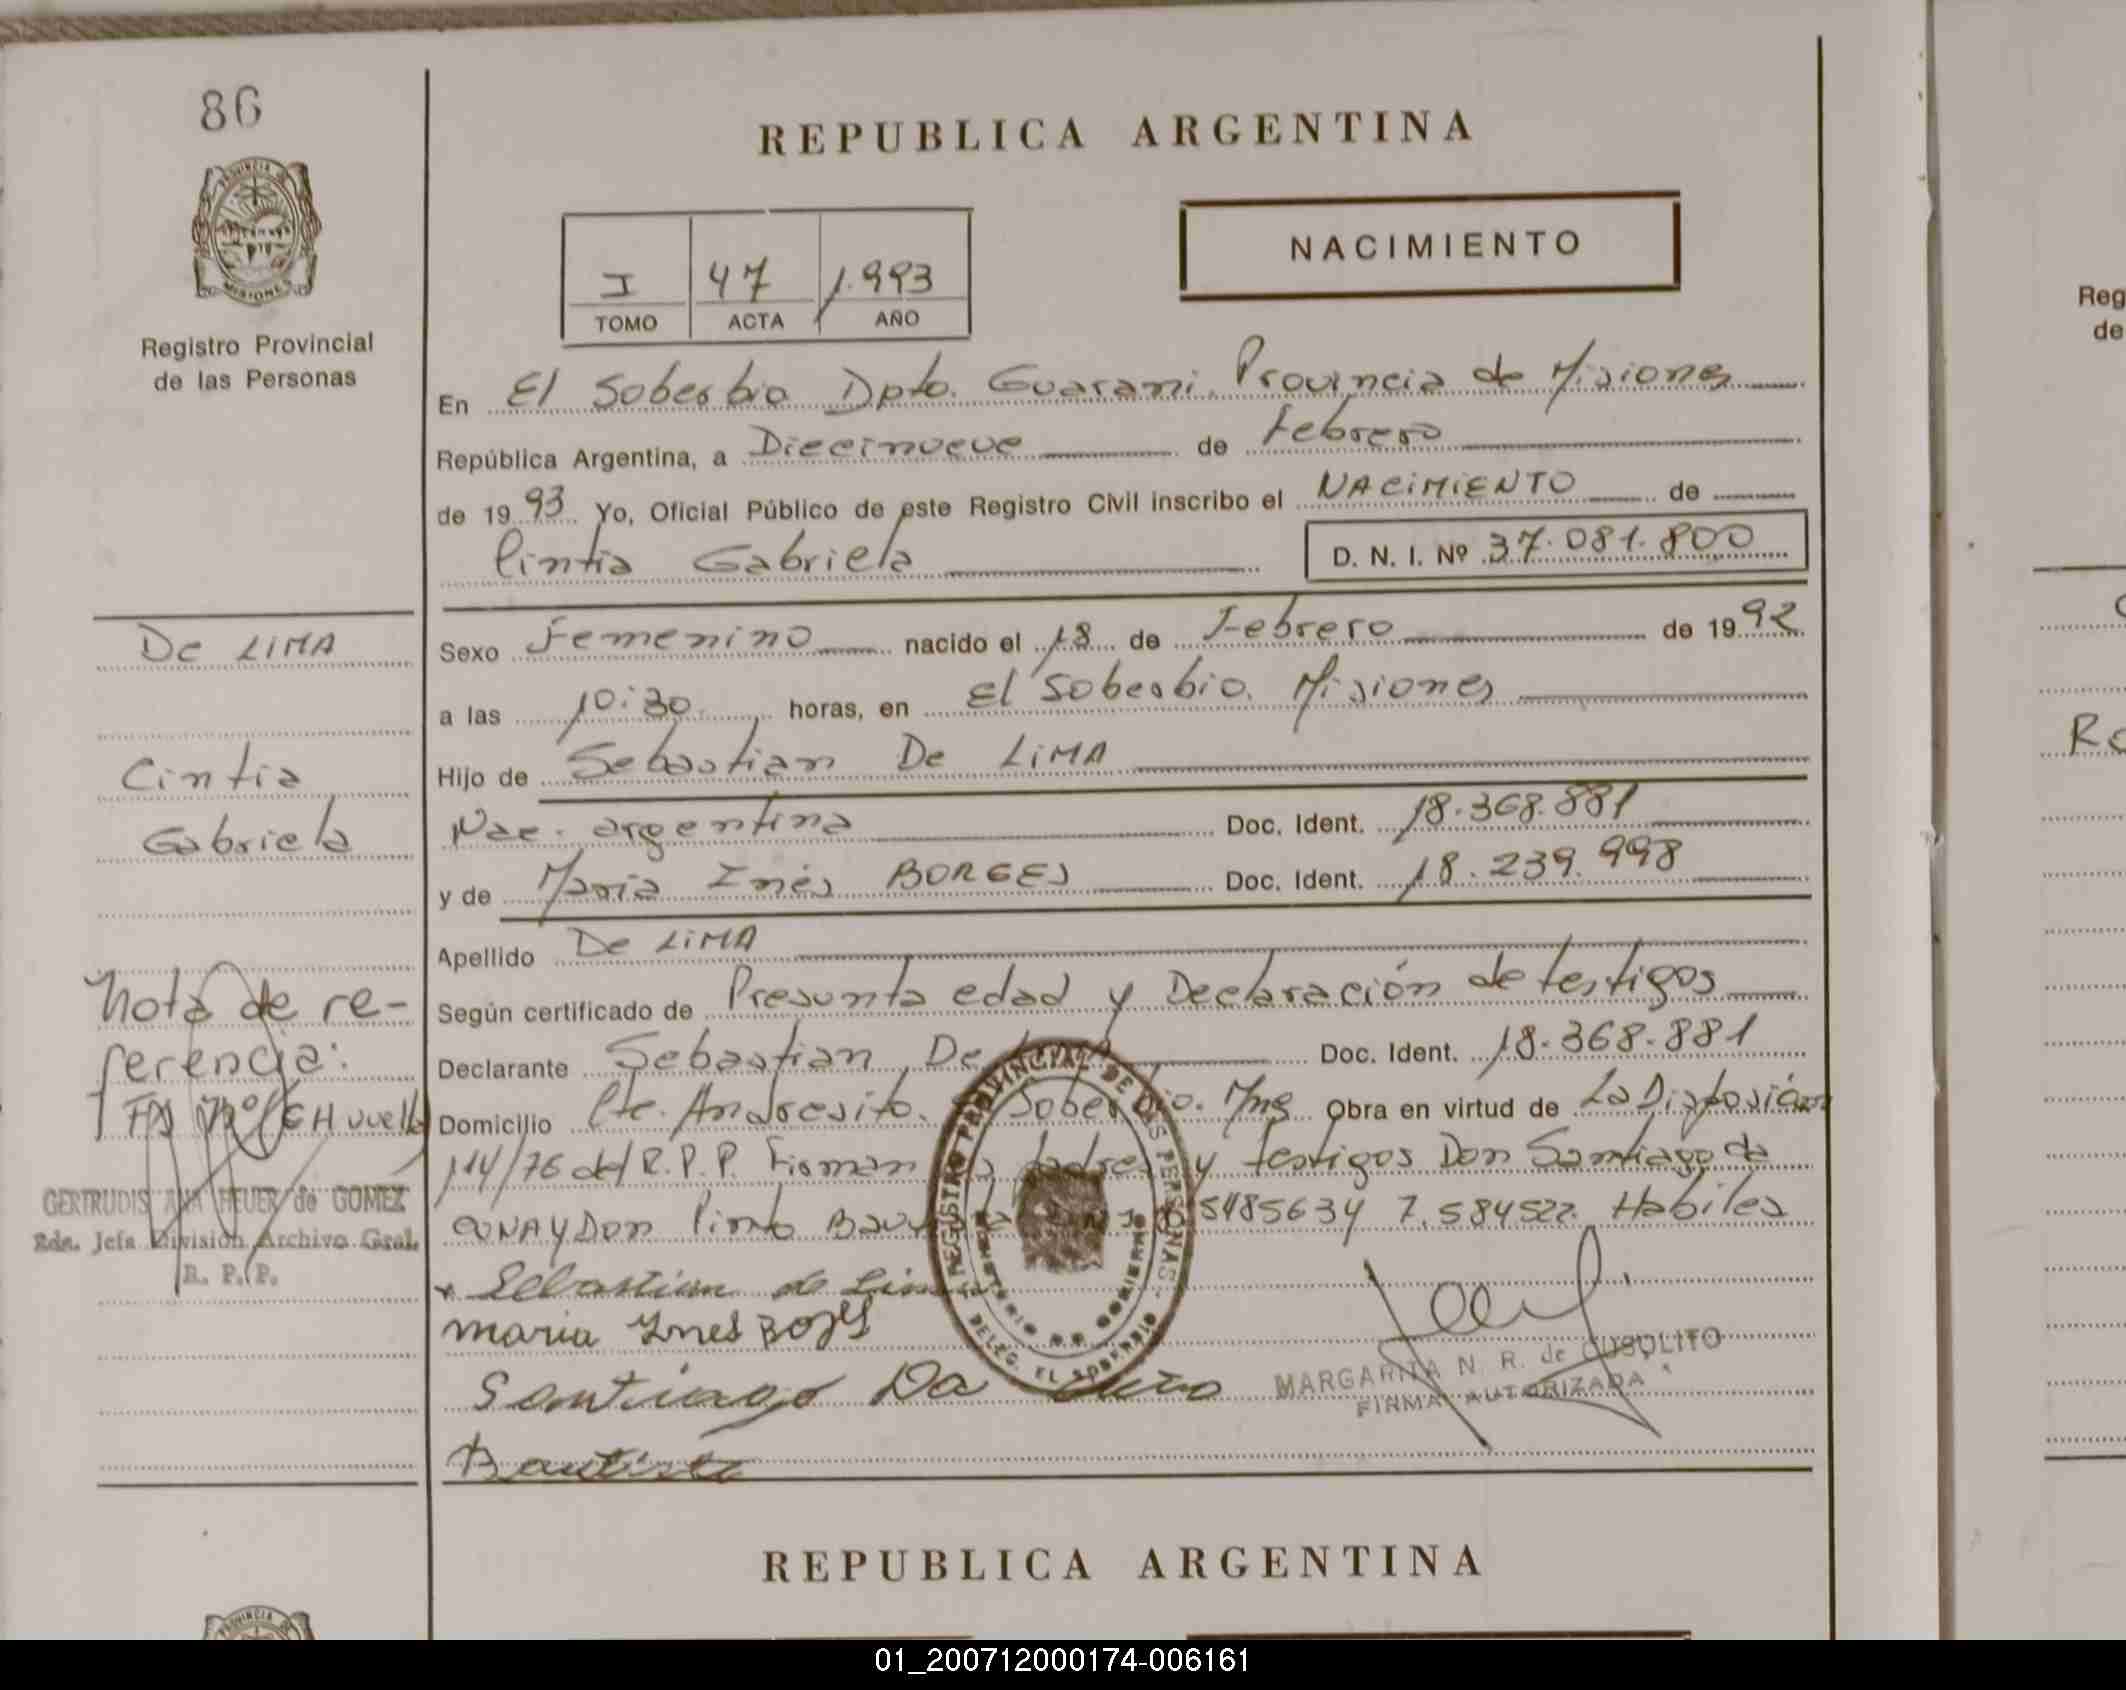 86
PROVINCIA DE
MISIONES
Registro Provincial
de las Personas
De LIMA
Cintia
Gabriela
Nota de re-
ferencia:
GERTRUDIS ANA HEUER de GOMEZ
Rda. Jefa División Archivo Gral.
R. P. P.
REPUBLICA ARGENTINA
NACIMIENTO
I 47 1.993
TOMO ACTA AÑO
En El Soberbio Dpto. Guarani. Provincia de Misiones
República Argentina, a Diecinueve de Febrero
de 19 93 Yo, Oficial Público de este Registro Civil inscribo el NACIMIENTO de
Cintia Gabriela D. N. I. Nº 37.081.800
Sexo Femenino nacido el 18 de Febrero de 19 92
a las 10:30 horas, en El Soberbio. Misiones
Hijo de Sebastian De LIMA
Nac. argentina Doc. Ident. 18.368.881
y de Maria Inés BORGES Doc. Ident. 18.239.998
Apellido De LIMA
Según certificado de Presunta edad y Declaración de testigos
Declarante Sebastian De Doc. Ident. 18.368.881
Domicilio Pte. Andresito. Soberbio. Mns Obra en virtud de La Disposición
114/76 del R.P.P. Firman y testigos Don Santiago da
CUNA y Don Pinto 5485634 7.584522 Habiles
Sebastian de Lima
maria Ynes
Santiago Da
Bautista
REGISTRO PROVINCIAL DE LAS PERSONAS
MINISTERIO DE GOBIERNO
DELEG. EL SOBERBIO
MARGARITA N. R. de CUSOLITO
FIRMA AUTORIZADA
REPUBLICA ARGENTINA
PROVINCIA DE
Reg
de
Ro
01_200712000174-006161